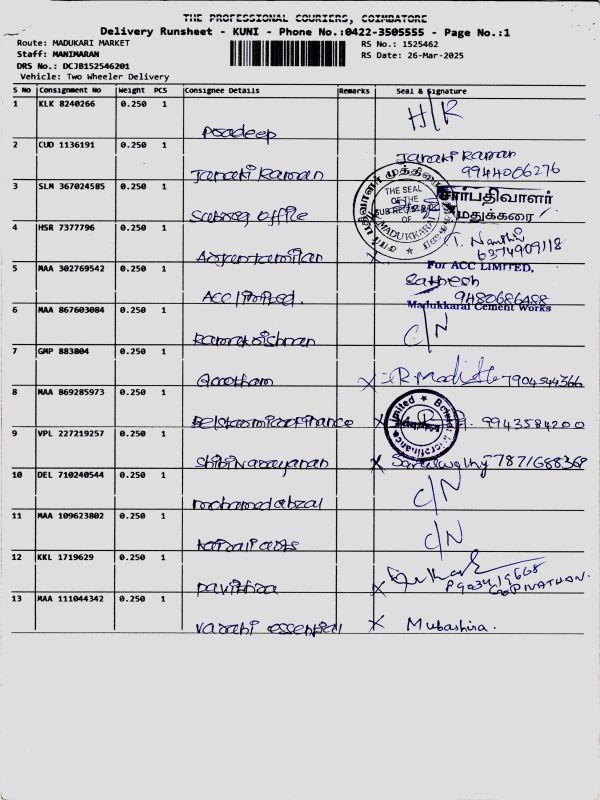 THE PROFESSIONAL COURIERS, COIMBATORE
Delivery Runsheet - KUNI - Phone No.:0422-3505555 - Page No.:1
Route: MADUKARI MARKET
RS No.: 1525462
Staff: MANIMARAN
RS Date: 26-Mar-2025
DRS No.: DCJB152546201
Vehicle: Two Wheeler Delivery
S No Consignment No Weight PCS Consignee Details Remarks Seal & Signature
1 KLK 8240266 0.250 1 H/R
Pradeep
2 CUD 1136191 0.250 1 Janaki Raman
Janaki Raman 9944006276
3 SLM 367024585 0.250 1 THE SEAL OF THE SUB REGISTRAR OF MADUKKARAI சார்பதிவாளர்
office மதுக்கரை
4 HSR 7377796 0.250 1 T. Nanthi
6374909118
5 MAA 302769542 0.250 1 For ACC LIMITED,
Sathesh
ACC limited. 9480686488
Madukkarai Cement Works
6 MAA 867603084 0.250 1 C/N
Ramakrishnan
7 GMP 883804 0.250 1
Gowtham X 7904544366
8 MAA 869285973 0.250 1
Belstar microfinance X 9943584200
9 VPL 227219257 0.250 1
Shibi Narayanan X 7871688368
10 DEL 710240544 0.250 1 C/N
mohamed abzal
11 MAA 109623802 0.250 1 C/N
12 KKL 1719629 0.250 1
pavithra X GOPINATHAN.
13 MAA 111044342 0.250 1
varahi essential X Mubashira.